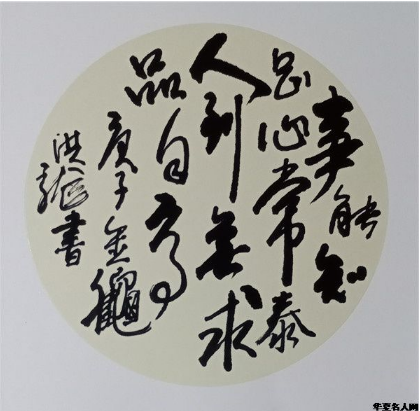 事能知
足心常泰
人到無求
品自高
庚子金龝
洪書
华夏名人网